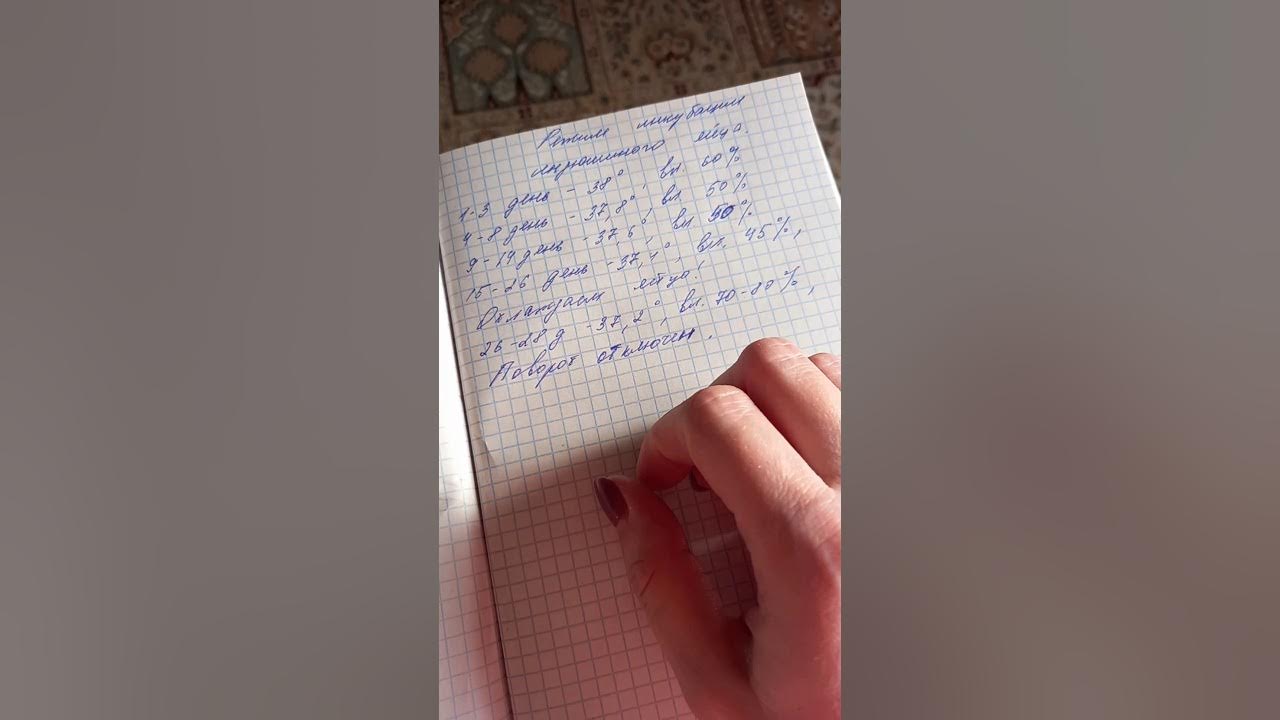 Режим инкубации
индюшиного яйца.
1-3 день - 38°, вл. 60%
4-8 день - 37,8°, вл 50%
9-14 день - 37,6°, вл 50%
15-26 день - 37,4°, вл. 45%,
Охлаждаем яйцо!
26-28 д - 37,2°, вл. 70-80%,
Поворот отключен.